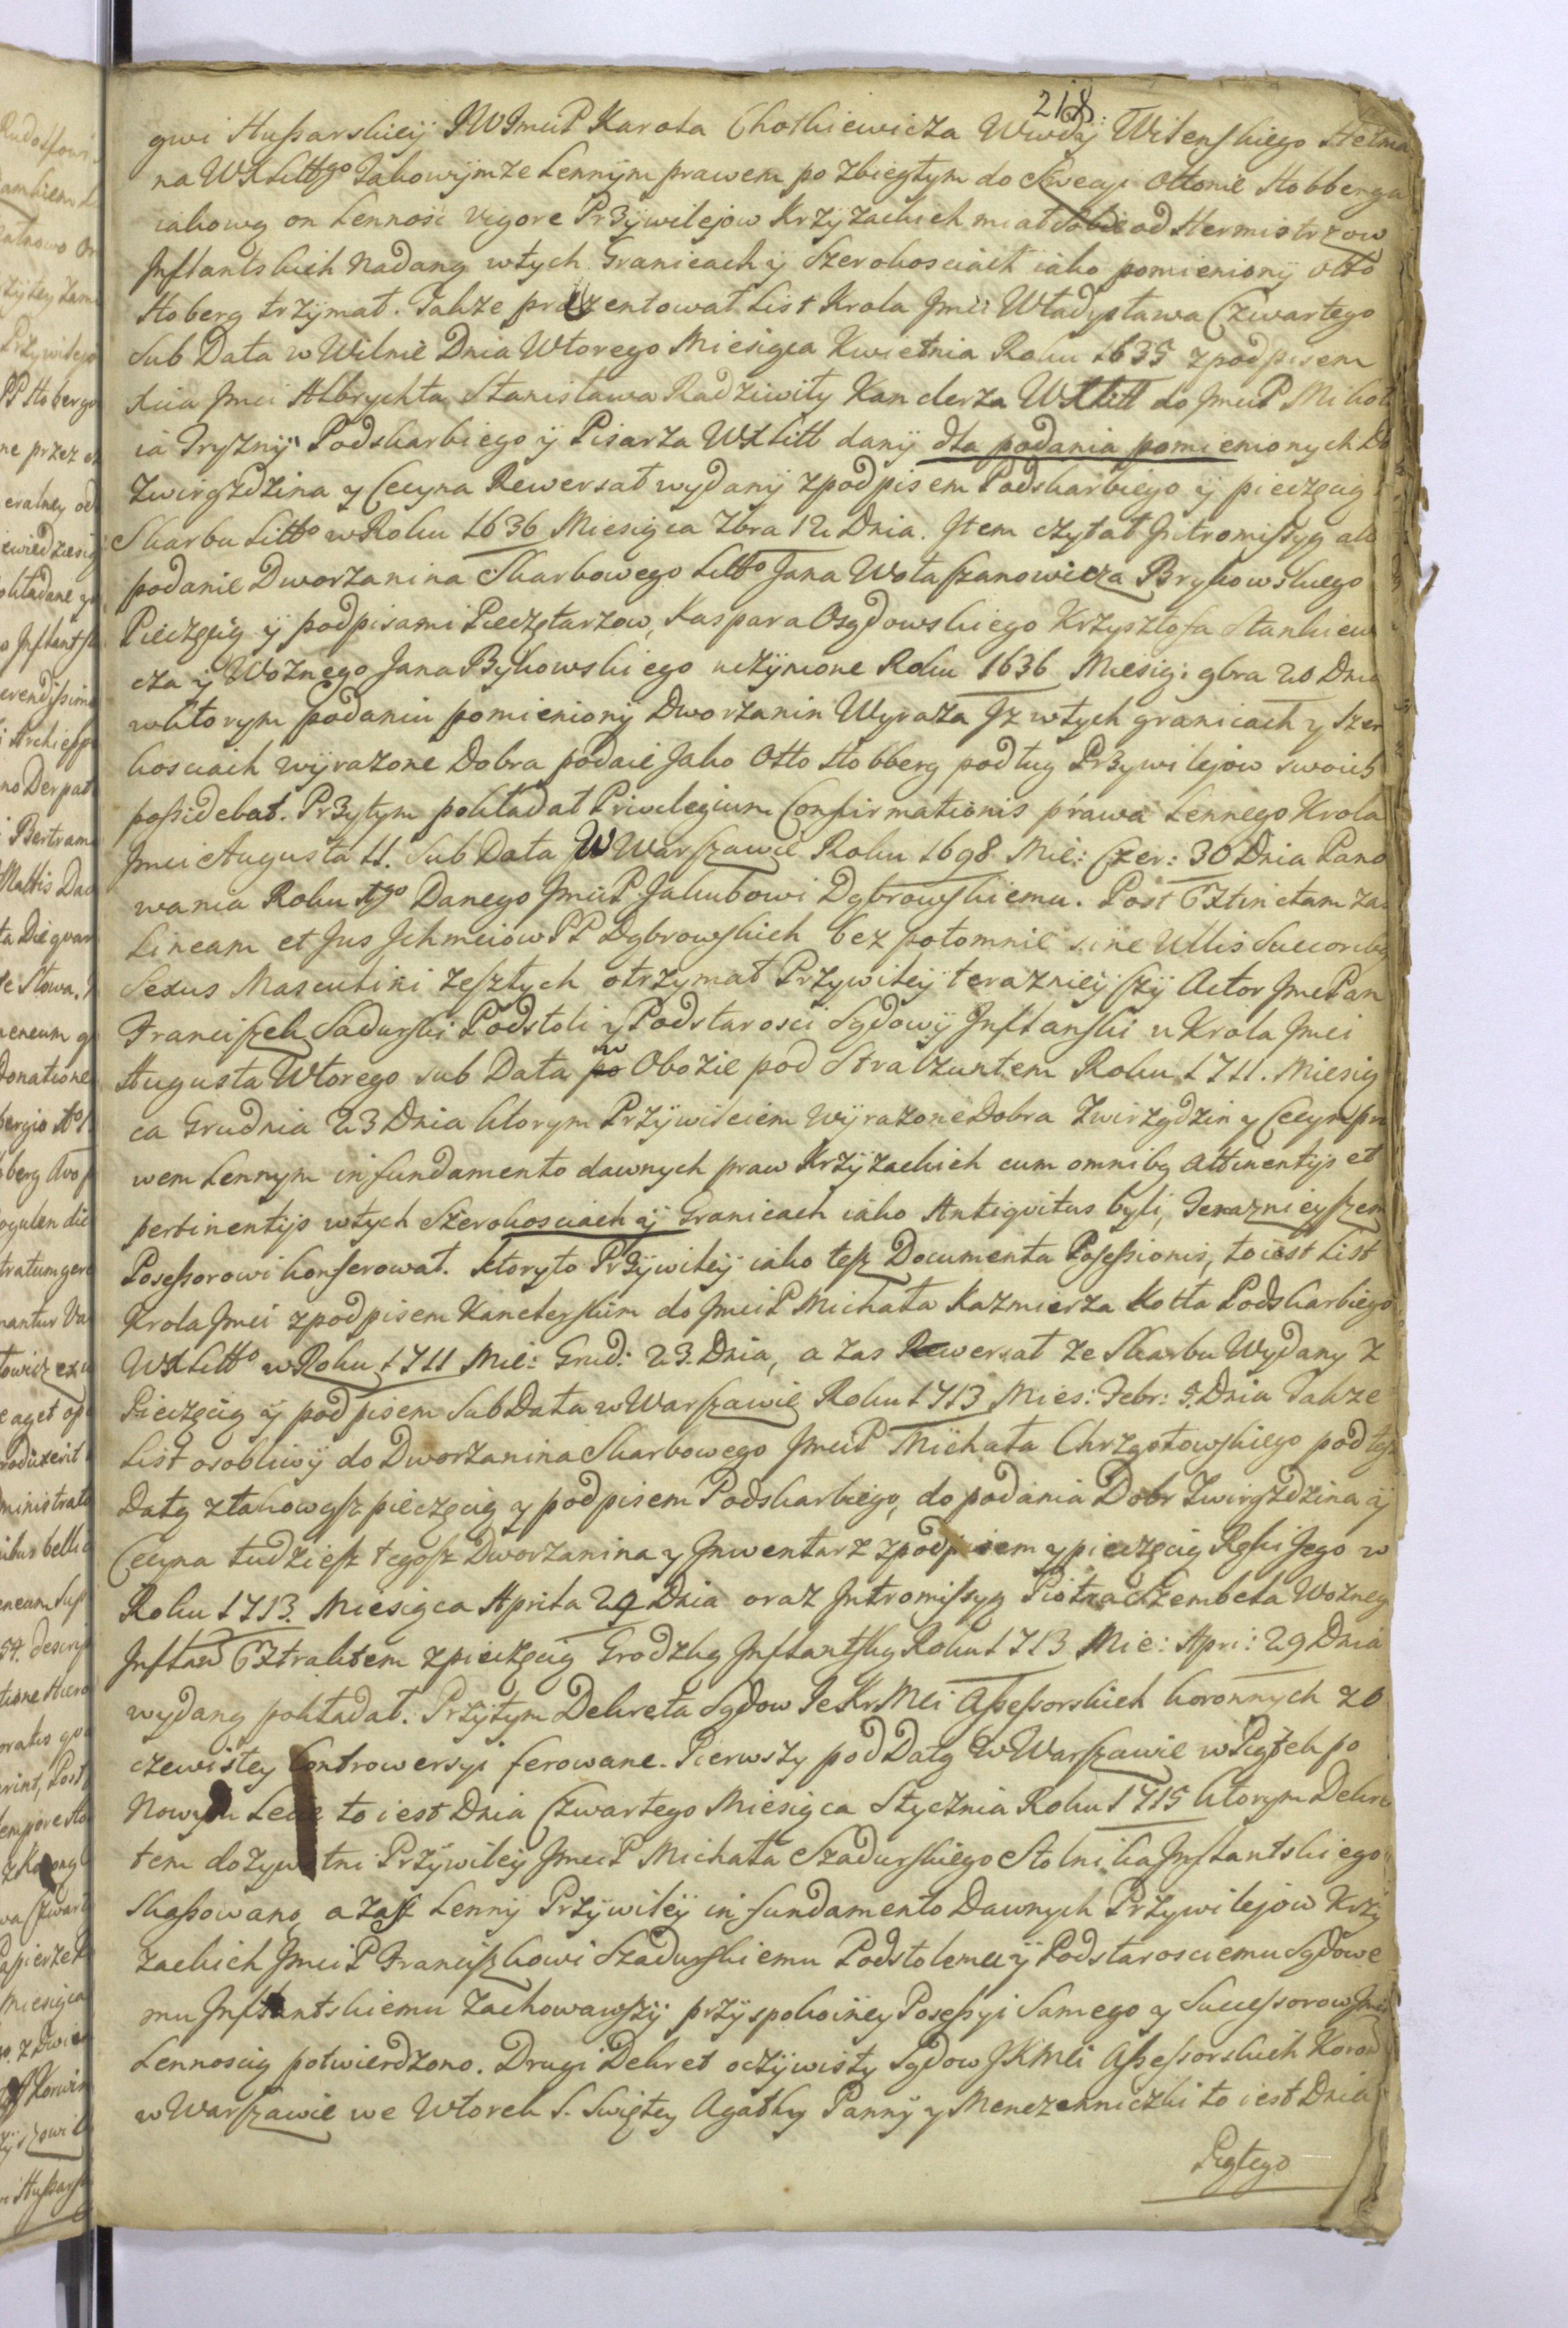 218
gwi Hußarskieÿ JWJmciP Karola Chotkiewicza Wwdÿ Wilenskiego Hetma
na WXLittgo Takowÿmze Lennÿm prawem po zbiegłym do Szwecyi Ottonie Hobberga
iakową on Lenność vigore Przÿwilejow Krzÿżackich miał sobie od Hermistrzow
Jnflantskich Nadaną wtych Granicach ÿ Szerokosciach iako pomienionÿ Otto
Hoberg trzÿmał. Także prezentował List Krola Jmci Władysława Czwartego
Sub Data w Wilnie Dnia Wtorego Miesiąca Kwietnia Roku 1635 zpodpisem
Xcia Jmci Albrychta Stanisława Radziwiły Kanclerza WXLitt do JmciP Mikoł
ia Tryznÿ Podskarbiego ÿ Pisarza WXLitt danÿ dla podania pomienionych Do
Zwirgzdzina y Cecyna Rewersał wydanÿ zpodpisem Podskarbiego ÿ pieczęcią
Skarbu Litto w Roku 1636 Miesiąca 7bra 12 Dnia. Jtem czytał Jntromissyą alb
podanie Dworzanina Skarbowego Litto Jana Wołaszanowicza Brykowskiego
Pieczęcią ÿ podpisami Pieczętarzow, Kaspara Osądowskiego Krzysztofa Stankiew
cza ÿ Woznego Jana Bykowskiego uczÿnione Roku 1636 Miesią: 9bra 20 Dnia
wktorym podaniu pomienionÿ Dworzanin Wyraża Jz wtych granicach y Szer
kosciach wÿrażone Dobra podaie Jako Otto Hobberg podług Przywilejow swoich
poßidebat. Przytym pokładał Privilegium Confirmationis prawa Lennego Krola
Jmci Augusta II. Sub Data W Warszawie Roku 1698 Mie: Czer: 30 Dnia Pano
wania Roku 1go Danego JmciP. Jakubowi Dąbrowskiemu. Post Extinctam zas
Lineam et Jus Jchmciow PP Dąbrowskich bez potomnie sine Ullis Succoribq
Sexus Masculini zeszłych otrzymał Przywileÿ teraznieÿszÿ Actor JmcPan
Franciszek Sadurski Podstoli y Podstarosci Sądowÿ Jnflanski u Krola Jmci
Augusta Wtorego sub Data w Obozie pod Stralzuntem Roku 1711. Miesią
ca Grudnia 23 Dnia ktorym Przÿwileiem Wÿrażone Dobra Zwirzgdzin y Cecyn pra
wem Lennym in fundamento dawnych praw Krzÿżackich cum omnibq Attinentijs et
pertinentijs wtych Szerokosciach ÿ Granicach iako Antiqvitus byli, Teraznieyszem
Poseßorowi konferował. Ktoryto Przÿwileÿ iako tesz Documenta Poseßionis, to iest List
Krola Jmci zpodpisem Kanclerskim do JmciP Michała Kazmierza Kotła Podskarbiego
WXLitto w Roku 1711 Mie: Grud: 23. Dnia, a zas Rewersał ze Skarbu Wydany z
Pieczęcią ÿ podpisem Sub Data w Warszawie Roku 1713 Mies: Febr: 5. Dnia Także
List osobliwÿ do Dworzanina Skarbowego JmciP Michała Chrząstowskiego pod tąż
Datą ztakowąsz pieczęcią y podpisem Podskarbiego, do podania Dobr Zwirgzdzina ÿ
Cecyna tudziesz tegosz Dworzanina y Jnwentarz zpodpisem y pieczęcią Ręki Jego w
Roku 1713. Miesiąca Aprila 29 Dnia oraz Jntromissyą Piotra Dzembela Woznego
Jnflan Extraktem zpieczęcią Grodzką Jnflantską Roku 1713 Mie: Apri: 29 Dnia
wydaną pokładał. Przÿtym Dekreta Sądow JeKrMci Aßeßorskich koronnych zo
czewistey Controwersyi ferowane. Pierwszy pod Datą w Warszawie w Piątek po
Nowym Lecie to iest Dnia Czwartego Miesiąca Stycznia Roku 1715 ktorym Dekre
tem dożywotni Przÿwileÿ JmciP Michała Szadurskiego Stolnika Jnflantskiego
Skaßowano, a zasz Lennÿ Przÿwileÿ in fundamento Dawnych Przywilejow Krzÿ
żackich JmciP Franciszkowi Szadurskiemu Podstolemu ÿ Podstarosciemu Sądowe
mu Jnflantskiemu Zachowawszÿ przÿ spokoinéy Poseßyi Samego y Succeßorow Jm
Lennoscią potwierdzono. Drugi Dekret oczÿwisty Sądow JKMci Aßeßorskich Koron
w Warszawie we Wtorek S. Swiętey Agathy Pannÿ y Menczenniczki to iest Dnia
Piątego